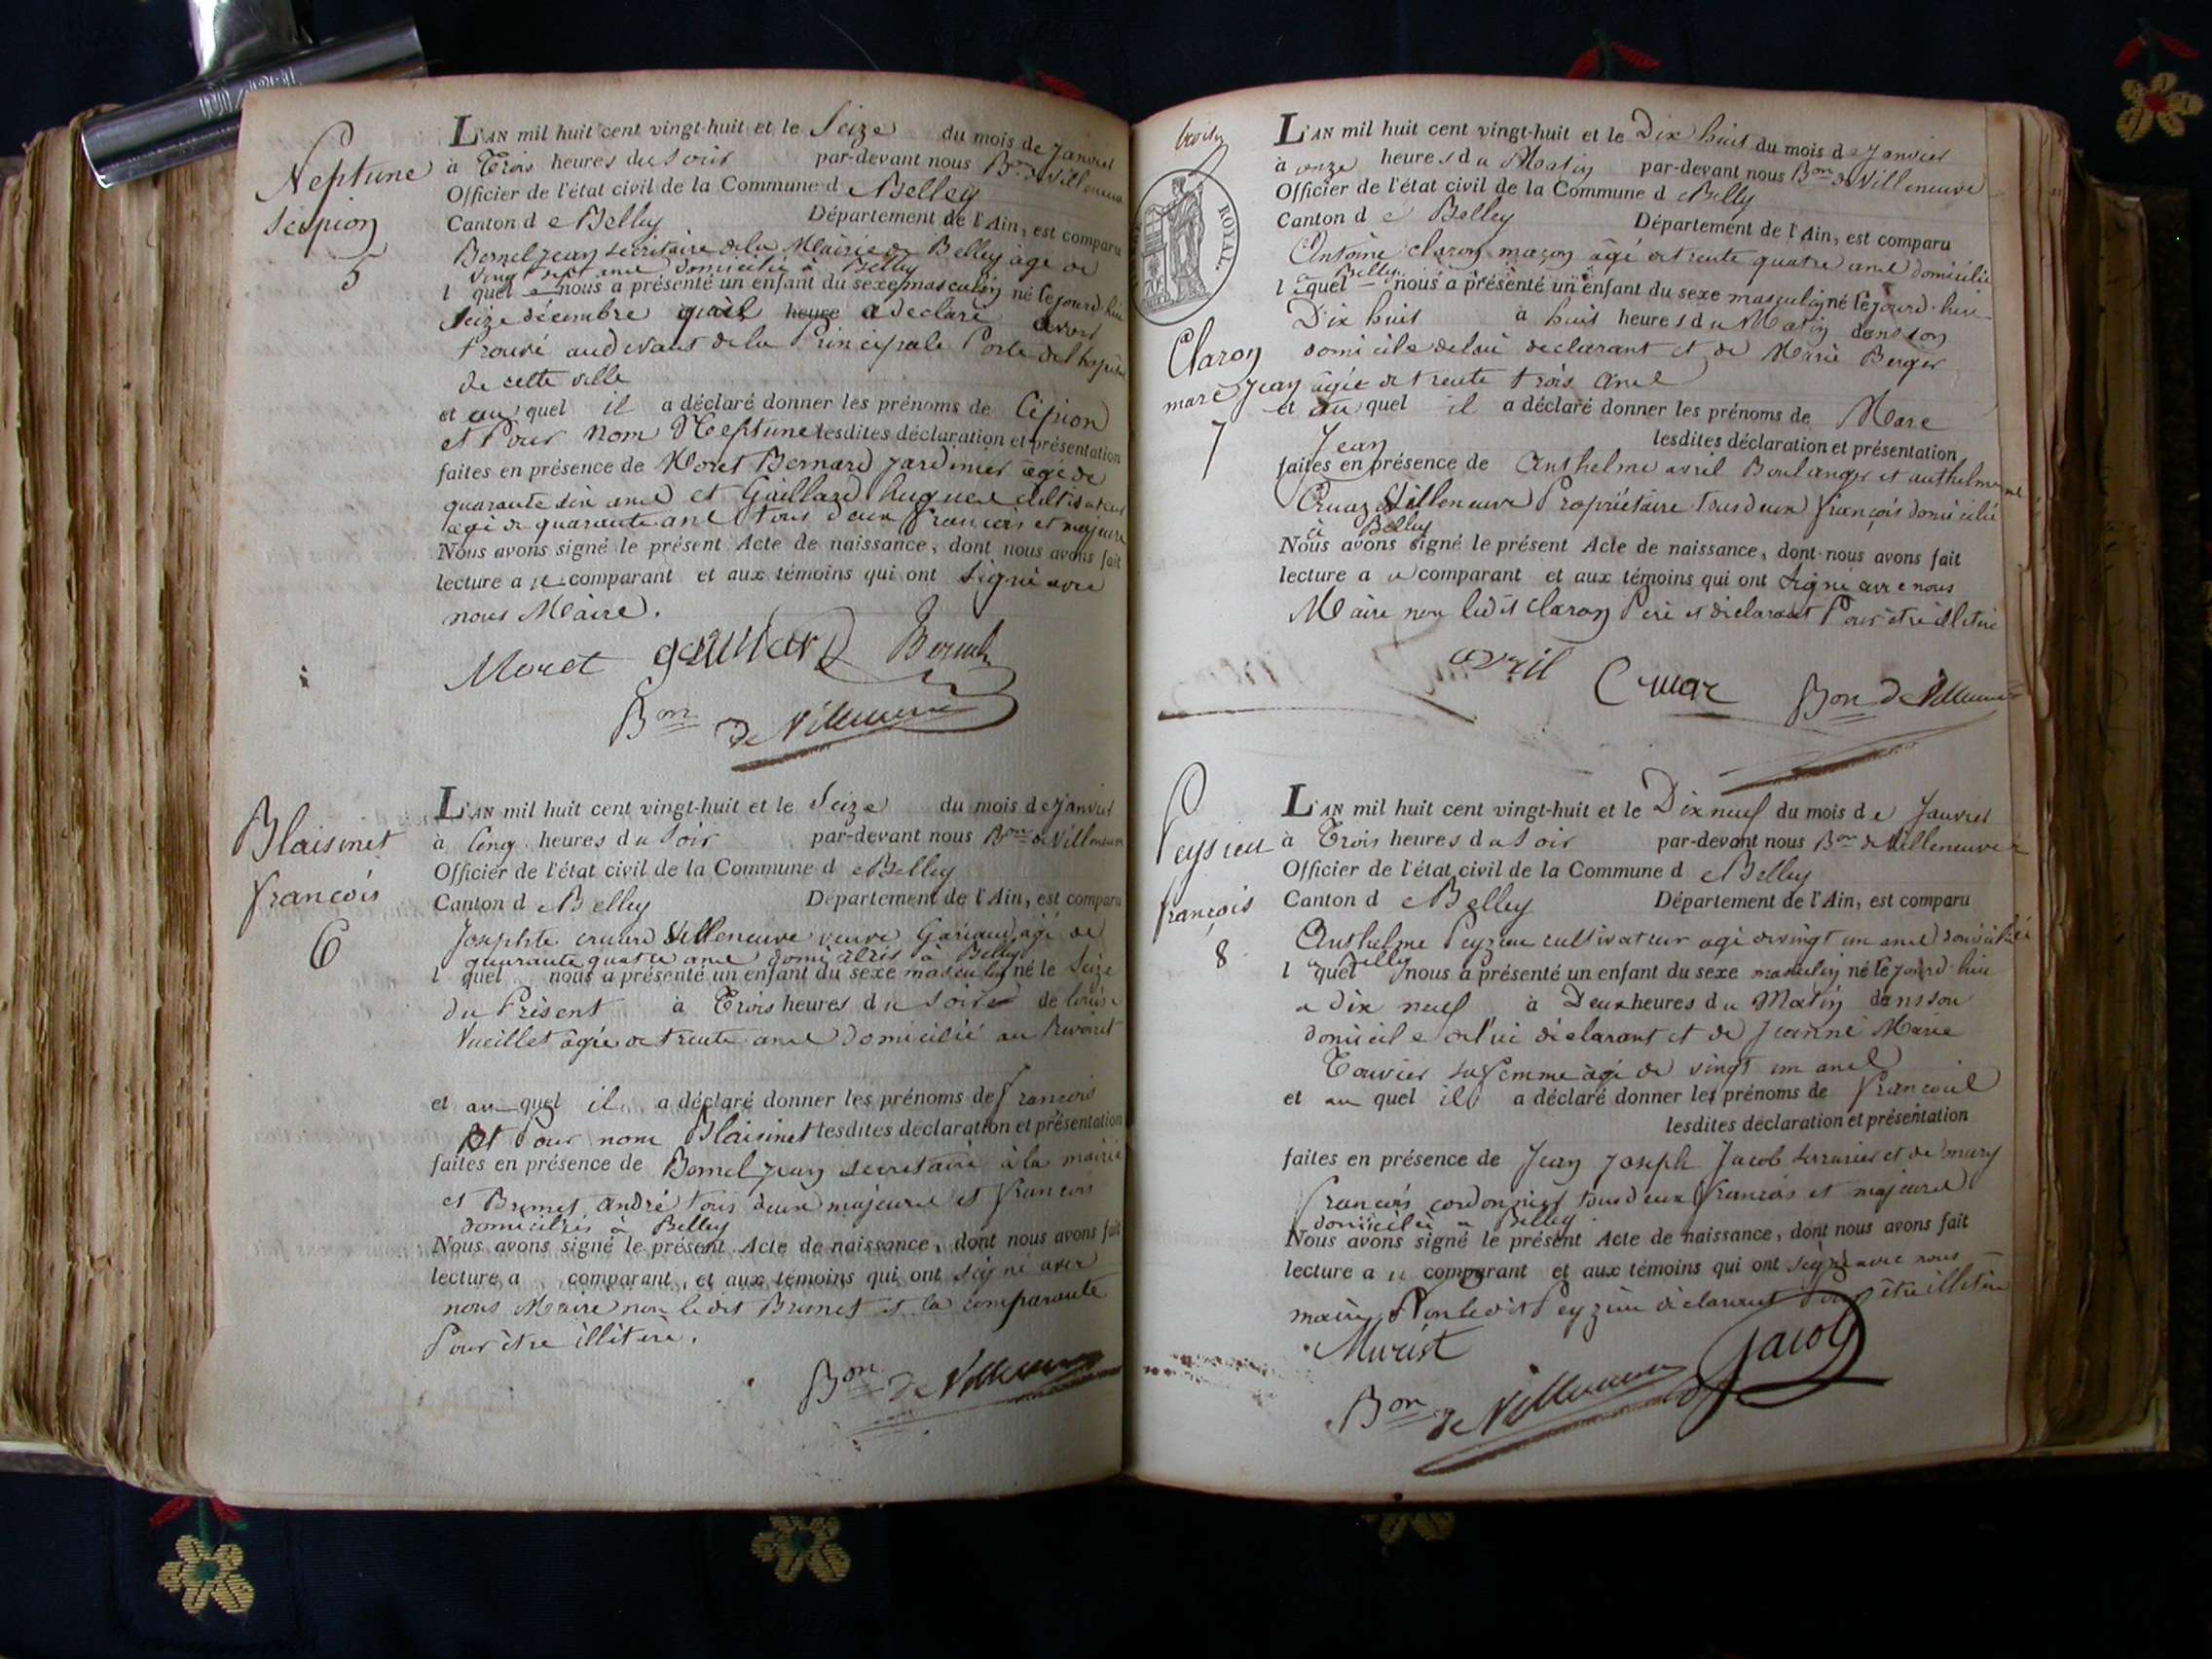 Neptune
Scipion
5
L'AN mil huit cent vingt-huit et le Seize du mois de Janvier
à Trois heures du Soir par-devant nous Bon de Villeneuve
Officier de l'état civil de la Commune d e Belley
Canton d e Belley Département de l'Ain, est comparu
Bornel Jean secrétaire de la Mairie de Belley âgé de
vingt sept ans domicilié à Belley
l quel nous a présenté un enfant du sexe masculin né le jourd'hui
Seize décembre qu'il heure a déclaré avoir
trouvé au devant de la Principale Porte de l'hopital
de cette ville
et au quel il a déclaré donner les prénoms de Cipion
et Pour nom Neptune lesdites déclaration et présentation
faites en présence de Moret Bernard Jardinier âgé de
quarante six ans et Gaillard hugues
agé de quarante ans tous deux francois et majeurs
Nous avons signé le présent Acte de naissance, dont nous avons fait
lecture a u comparant et aux témoins qui ont Signé avec
nous Maire.
Moret gaillard
Bon de Villeneuve
Blaisinet
francois
6
L'AN mil huit cent vingt-huit et le Seize du mois de Janvier
à Cinq heures du Soir par-devant nous Bon de Villeneuve
Officier de l'état civil de la Commune d e Belley
Canton d e Belley Département de l'Ain, est comparu
Josephte Villeneuve veuve âgé de
quarante quatre ans domiciliés à Belley
l quel nous a présenté un enfant du sexe masculin né le Seize
du Présent à Trois heures du Soir de louise
Vueillet âgée de trente ans domicilié au
et au quel il a déclaré donner les prénoms de francois
Et Pour nom Blaisinet lesdites déclaration et présentation
faites en présence de Bornel Jean Secretaire à la mairie
et Brunet andré tous deux majeurs et francois
domiciliés à Belley
Nous avons signé le présent Acte de naissance, dont nous avons fait
lecture a comparant et aux témoins qui ont signé avec
nous Maire non ledit Brunet et la comparante
Pour être illiteré.
Bon de Villeneuve
ROYAL.
Claron
marc Jean
7
L'AN mil huit cent vingt-huit et le Dix huit du mois de Janvier
à onze heures du Matin par-devant nous Bon de Villeneuve
Officier de l'état civil de la Commune d e Belley
Canton d e Belley Département de l'Ain, est comparu
Antoine claron maçon âgé de trente quatre ans domicilié
a Belley
l e quel nous a présenté un enfant du sexe masculin né le jourd'hui
Dix huit à huit heures du Matin dans son
domicile de lui declarant et de Marie Berger
âgée de trente trois ans
et au quel il a déclaré donner les prénoms de Marc
Jean lesdites déclaration et présentation
faites en présence de Anthelme avril Boulanger et anthelme
Cruaz Villeneuve Propriétaire tous deux françois domicilié
à Belley
Nous avons signé le présent Acte de naissance, dont nous avons fait
lecture a u comparant et aux témoins qui ont signé avec nous
Maire non ledit Claron Père et déclarant Pour être illiteré
avril Cruaz Bon de Villeneuve
Peysieu
françois
8
L'AN mil huit cent vingt-huit et le Dix neuf du mois d e Janvier
à Trois heures du Soir par-devant nous Bon de Villeneuve
Officier de l'état civil de la Commune d e Belley
Canton d e Belley Département de l'Ain, est comparu
Anthelme Peyzieu cultivateur agé de vingt un ans domicilié
a Belley
l quel nous a présenté un enfant du sexe masculin né le jourd'hui
a dix neuf à Deux heures du Matin dans son
domicile de lui déclarant et de Jeanne Marie
Touvier sa femme âgé de vingt un ans
et au quel il a déclaré donner les prénoms de francois
lesdites déclaration et présentation
faites en présence de Jean Joseph Jacob Serrurier et de
francois cordonnier tous deux francois et majeurs
domicilié a Belley
Nous avons signé le présent Acte de naissance, dont nous avons fait
lecture a u comparant et aux témoins qui ont signé avec nous
maire Non ledit Peyzieu déclarant Pour être illiteré
Jacob
Bon de Villeneuve